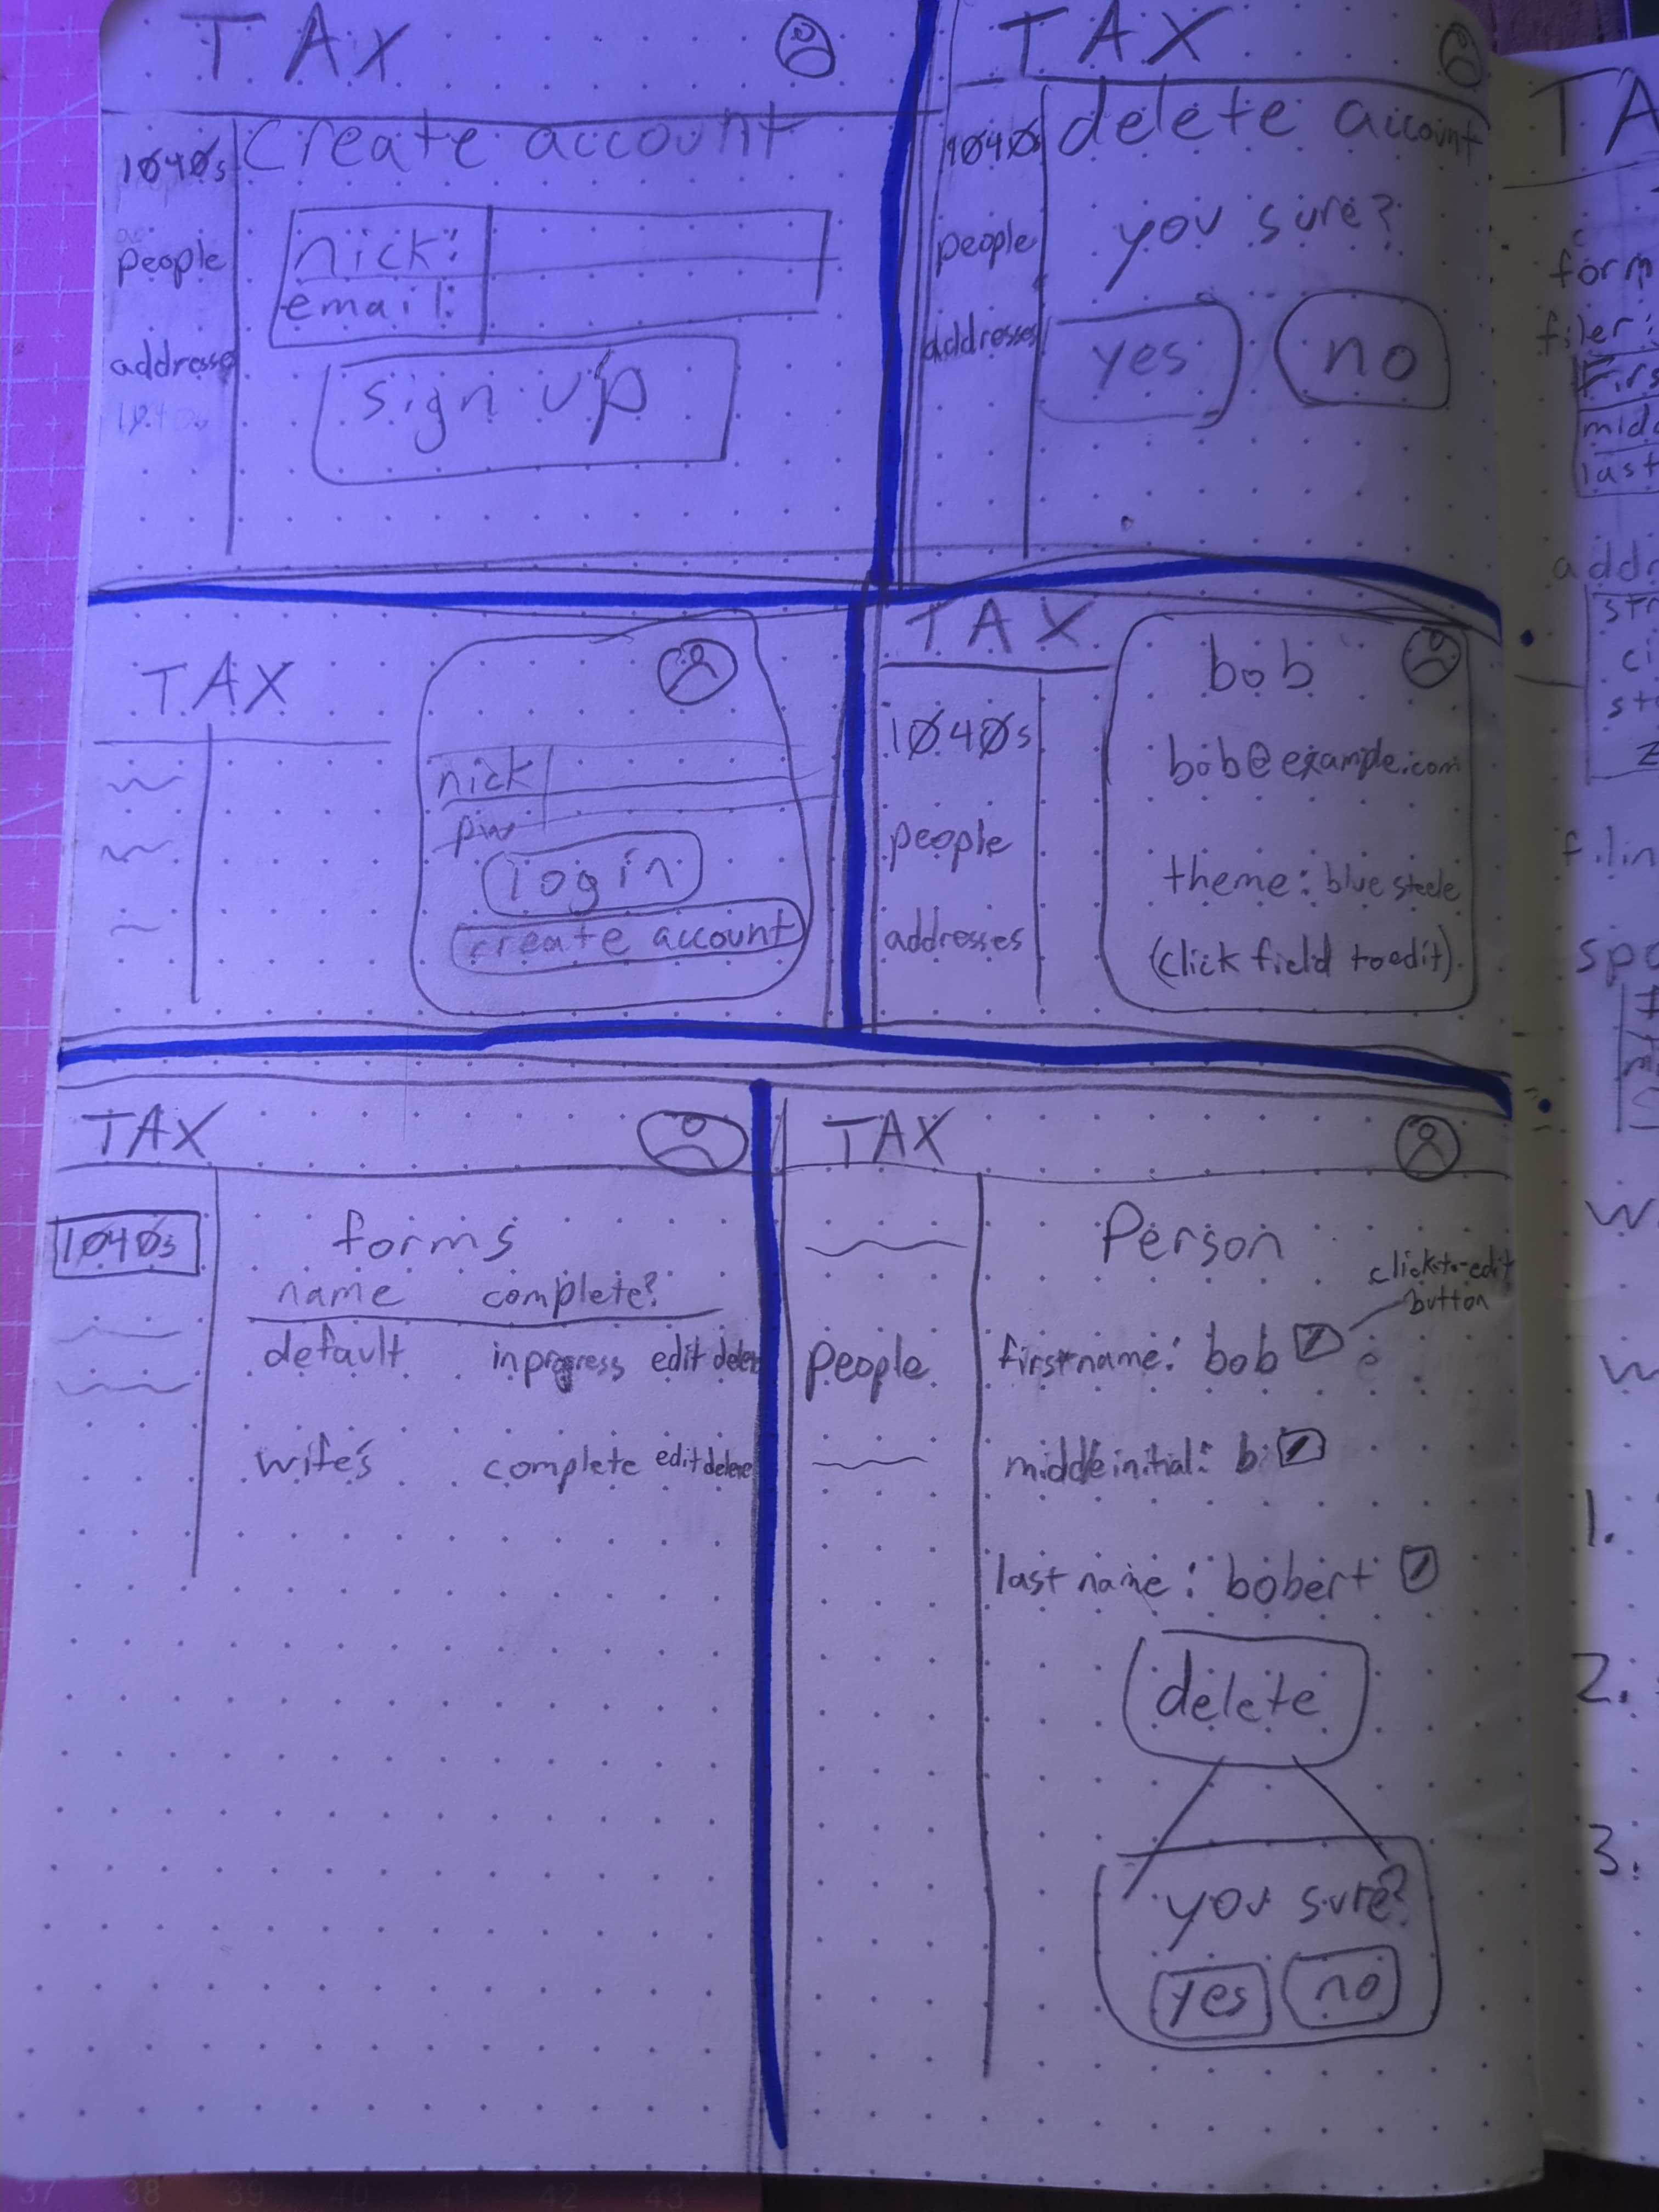 TAX
1040s
people
addresse
create account
nick:
email:
sign up
TAX
1040s
people
addresses
delete account
you sure?
yes
no
TAX
nick
pw
log in
create account
TAX
1040s
people
addresses
bob
bob@example.com
theme: blue steele
(click field to edit)
TAX
1040s
forms
name complete?
default in progress edit delete
wife's complete edit delete
TAX
people
Person
click-to-edit
button
first name: bob
middle initial: b
last name: bobert
delete
you sure?
yes no
TA
form
filer:
firs
midd
last
addr
str
ci
st
z
filin
spo
w
w
1.
2.
3.
37 38 39 40 41 42 43